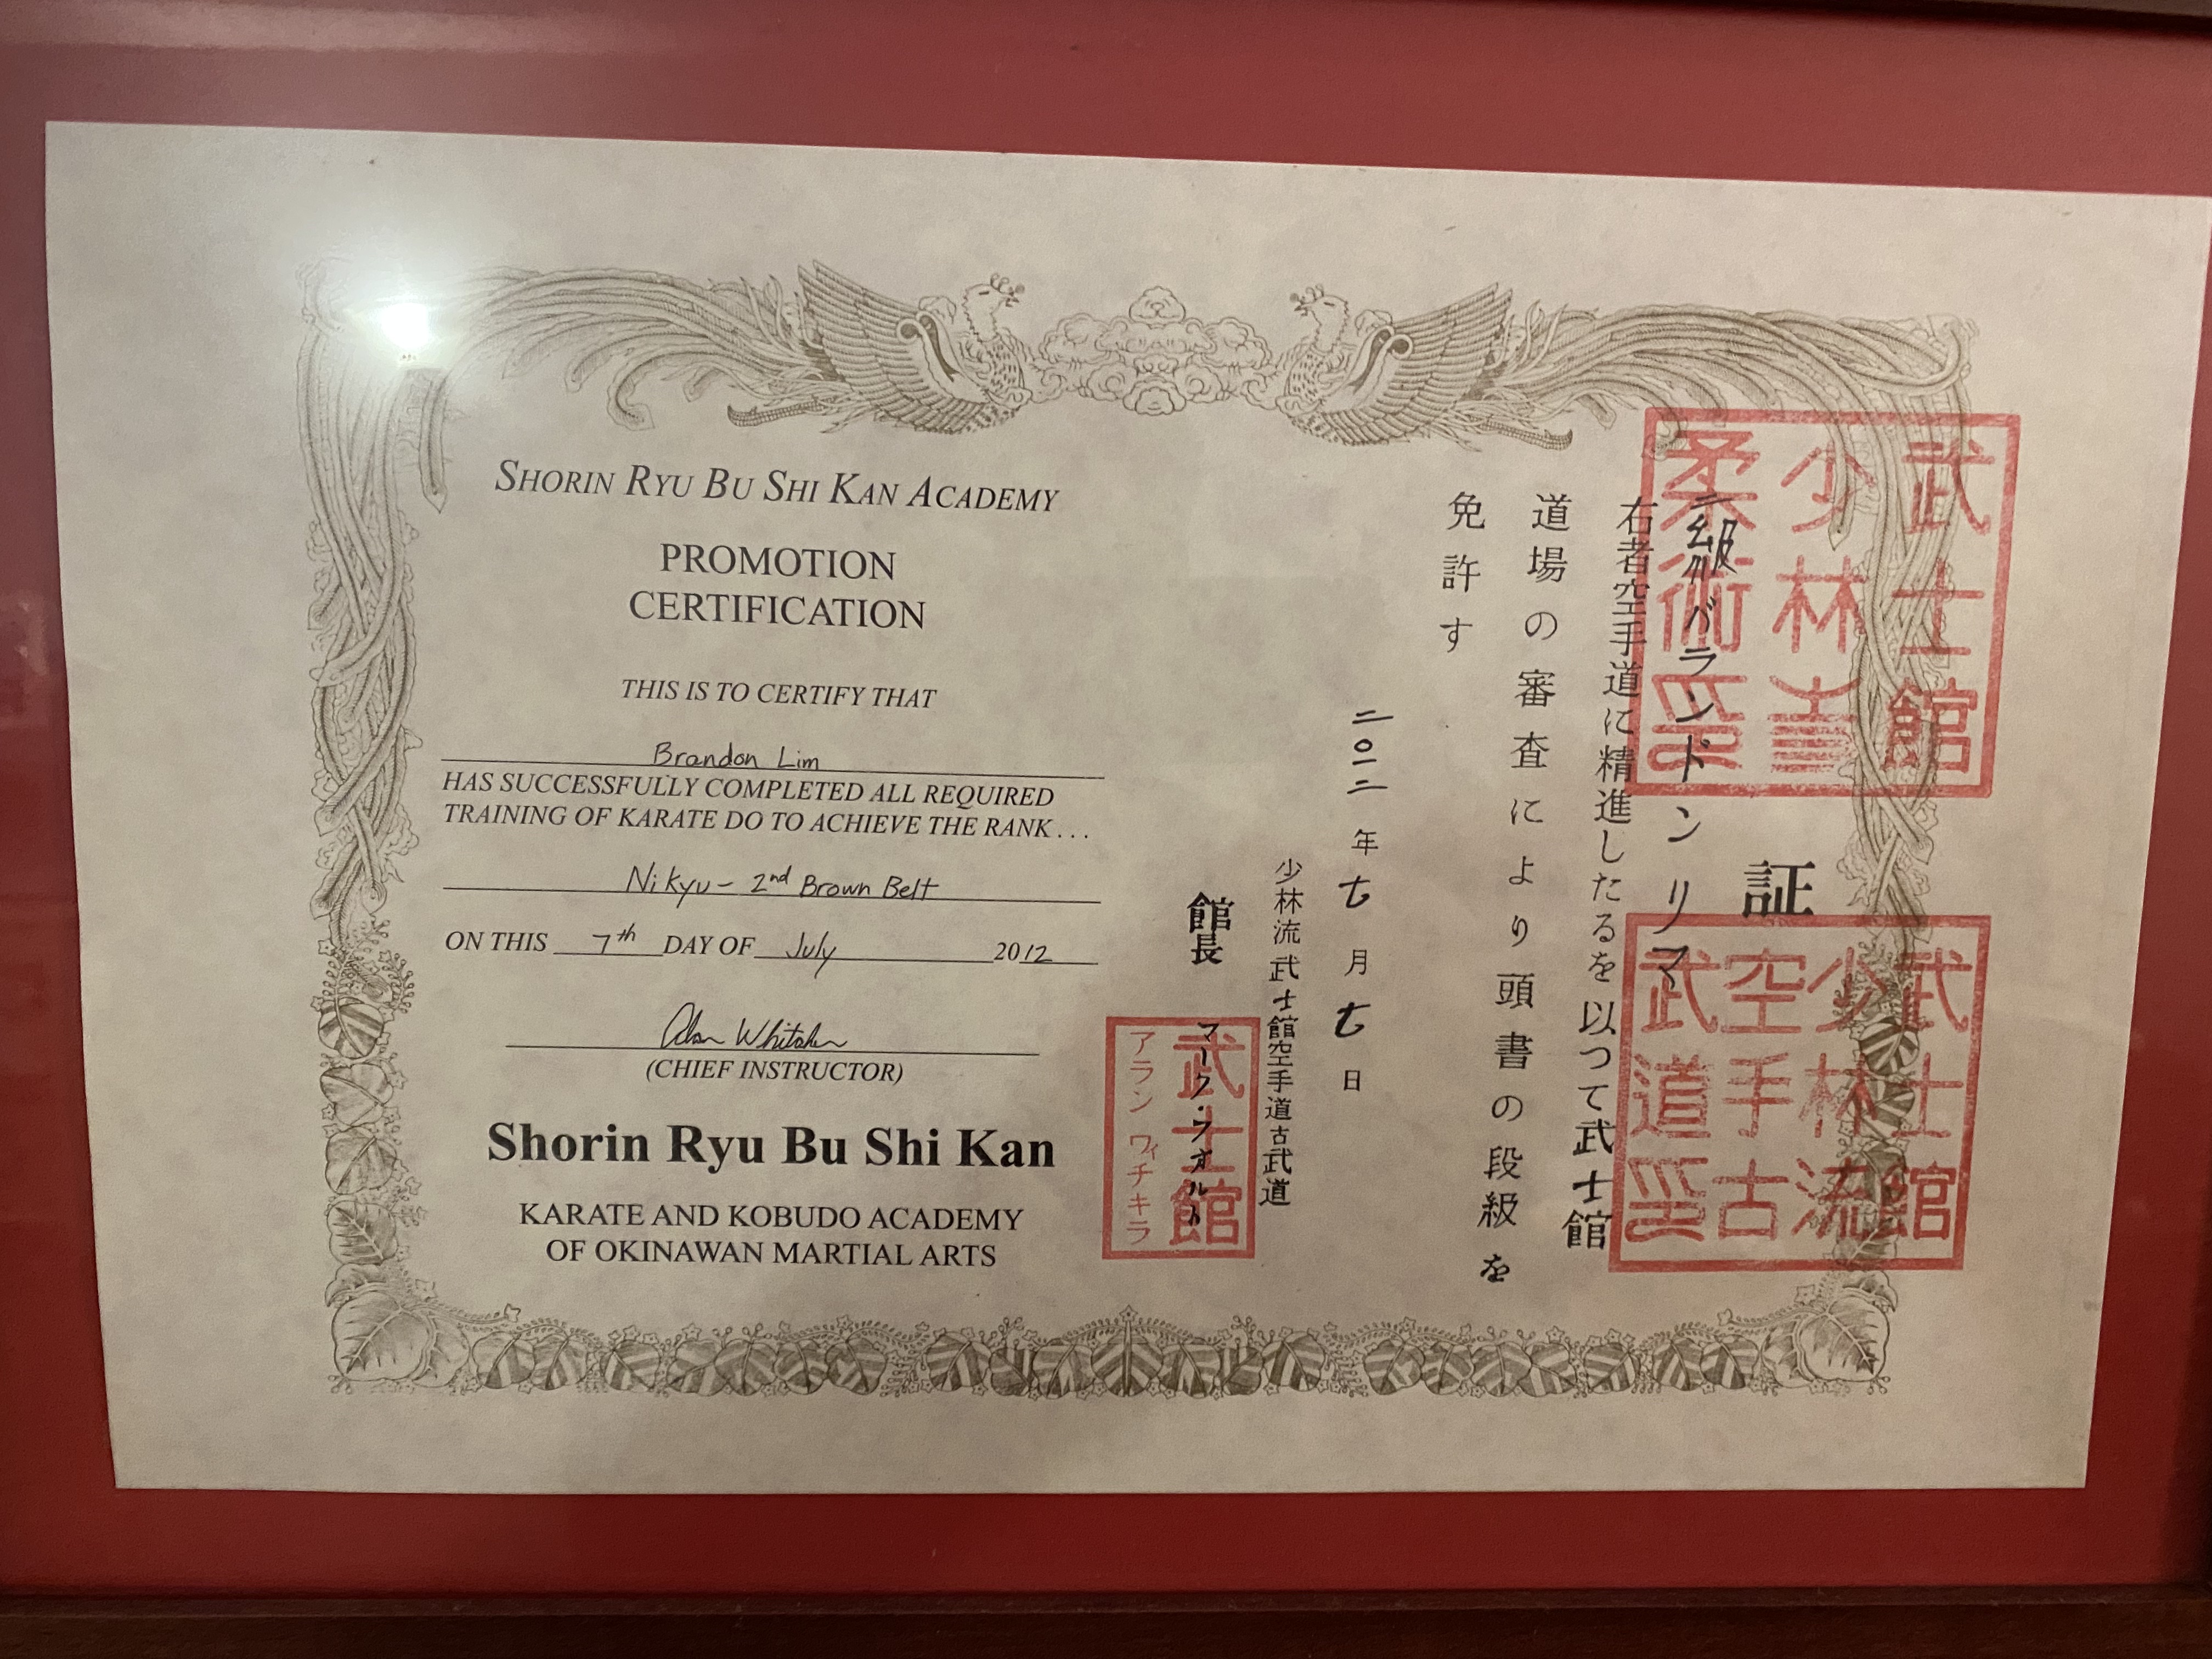 SHORIN RYU BU SHI KAN ACADEMY
PROMOTION
CERTIFICATION
THIS IS TO CERTIFY THAT
Brandon Lim
HAS SUCCESSFULLY COMPLETED ALL REQUIRED
TRAINING OF KARATE DO TO ACHIEVE THE RANK . . .
Nikyu - 2nd Brown Belt
ON THIS 7th DAY OF July 2012
Alan Whitaker
(CHIEF INSTRUCTOR)
Shorin Ryu Bu Shi Kan
KARATE AND KOBUDO ACADEMY
OF OKINAWAN MARTIAL ARTS
証
二級 バランドン リマ
右者空手道に精進したるを以つて武士館
道場の審査により頭書の段級を
免許す
二〇一二年七月七日
少林流武士館空手道古武道
館長 マーク・ワオルト
武士館
少林
柔術印
武士館
少林流
空手古
武道印
武士館
アラン ウィチキラ